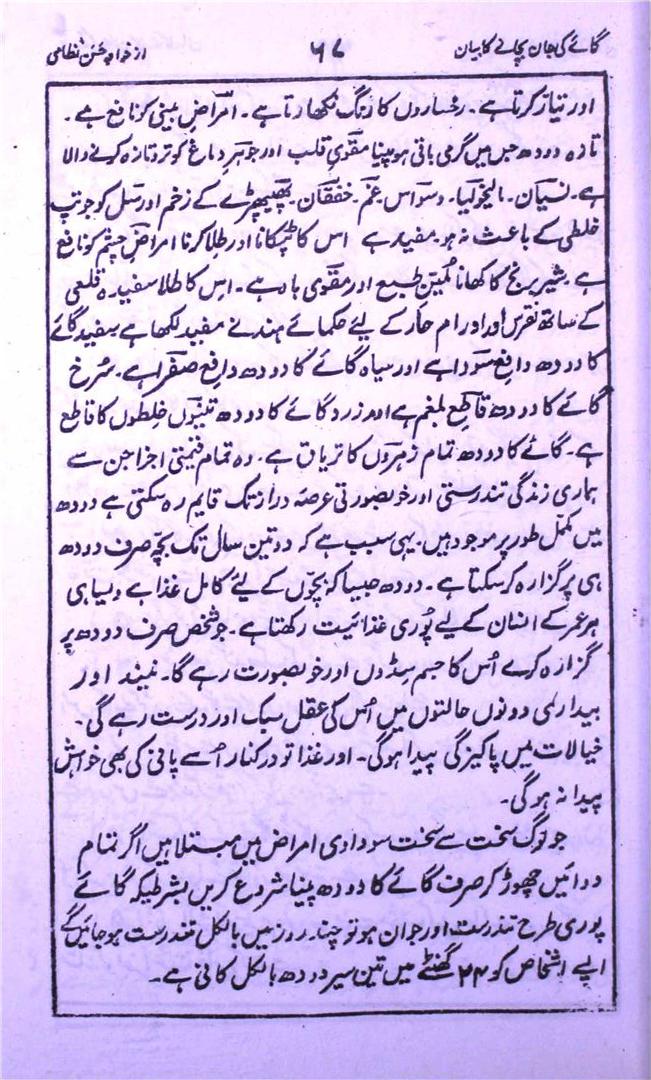 گائے کی جان بچانے کا بیان ۶۸ از خواجہ حسن نظامی
اور تیار کرتا ہے۔ رخساروں کا رنگ نکھارتا ہے۔ امراض بینی کو نافع ہے۔
تازہ دودھ جس میں گرمی باقی ہو پینا مقوی قلب اور جوہر دماغ کو تروتازہ کرنے والا
ہے۔ نسیان۔ مالیخولیا۔ وسواس۔ غم۔ خفقان۔ پھیپھڑے کے زخم اور سل کو جو تپ
خلطی کے باعث نہ ہو۔ مفید ہے اس کا ٹپکانا اور طلا کرنا امراض چشم کو نافع
ہے شیر برنج کا کھانا ملین طبع اور مقوی باہ ہے۔ اس کا طلا سفیدہ قلعی
کے ساتھ نقرس اور اورام حار کے لیئے حکمائے ہند نے مفید لکھا ہے سفید گائے
کا دودھ دافع سودا ہے اور سیاہ گائے کا دودھ دافع صفرا ہے۔ سُرخ
گائے کا دودھ قاطع بلغم ہے اور زرد گائے کا دودھ تینوں خلطوں کا قاطع
ہے۔ گائے کا دودھ تمام زہروں کا تریاق ہے۔ وہ تمام قیمتی اجزا جن سے
ہماری زندگی تندرستی اور خوبصورتی عرصہ دراز تک قایم رہ سکتی ہے دودھ
میں مکمل طور پر موجود ہیں۔ یہی سبب ہے کہ دو تین سال تک بچہ صرف دودھ
ہی پر گزارہ کر سکتا ہے۔ دودھ جیسا کہ بچوں کے لیئے کامل غذا ہے ویسا ہی
ہر عمر کے انسان کے لیے پُوری غذائیت رکھتا ہے۔ جو شخص صرف دودھ پر
گزارہ کرے اُس کا جسم سڈول اور خوبصورت رہے گا۔ نیند اور
بیداری دونوں حالتوں میں اُس کی عقل سبک اور درست رہے گی۔
خیالات میں پاکیزگی پیدا ہوگی۔ اور غذا تو درکنار اُسے پانی کی بھی خواہش
پیدا نہ ہوگی۔
جو لوگ سخت سے سخت سوداوی امراض میں مبتلا ہیں اگر تمام
دوائیں چھوڑ کر صرف گائے کا دودھ پینا شروع کریں بشرطیکہ گائے
پوری طرح تندرست اور جوان ہو تو چند روز میں بالکل تندرست ہو جائیں گے
ایسے اشخاص کو ۲۴ گھنٹے میں تین سیر دودھ بالکل کافی ہے۔